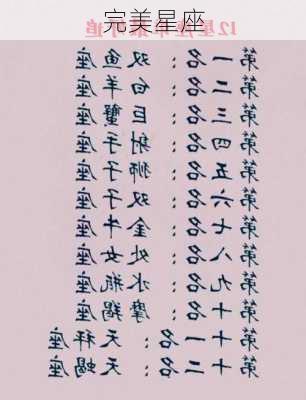 完美星座
12星座
第一名：双鱼座
第二名：白羊座
第三名：巨蟹座
第四名：射手座
第五名：狮子座
第六名：双子座
第七名：金牛座
第八名：处女座
第九名：水瓶座
第十名：摩羯座
第十一名：天秤座
第十二名：天蝎座